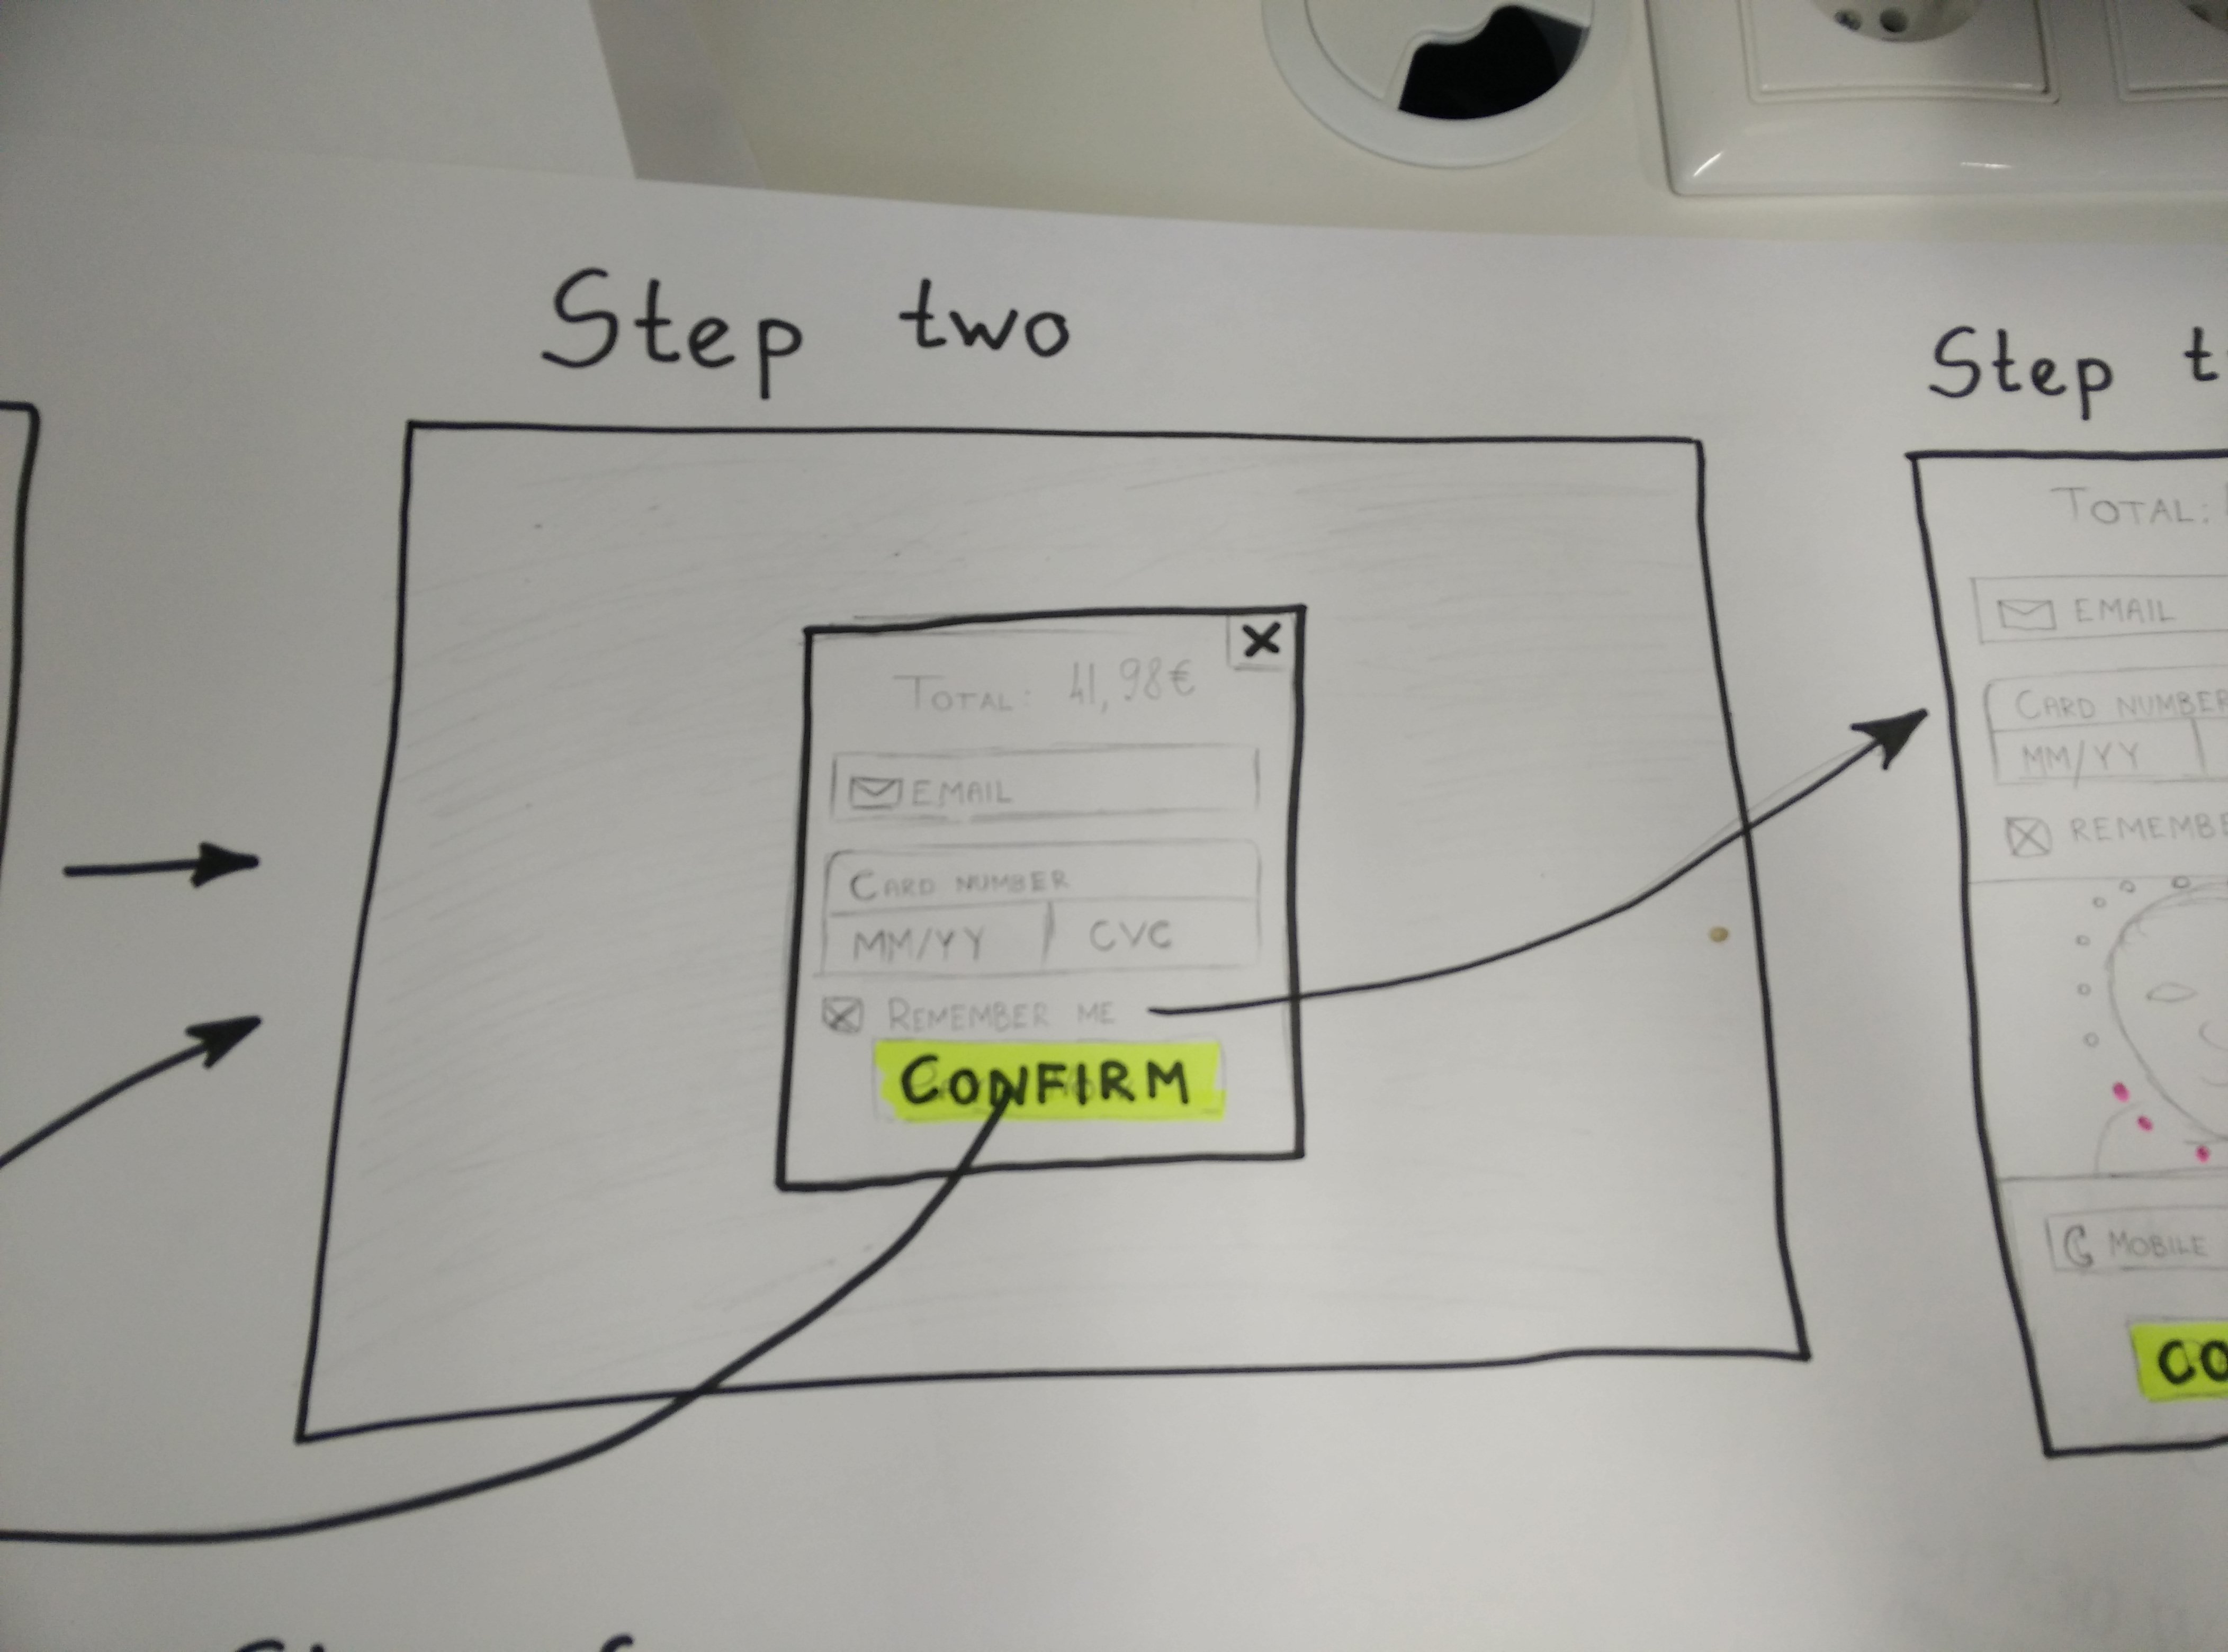 Step two
TOTAL: 41,98€
EMAIL
CARD NUMBER
MM/YY CVC
REMEMBER ME
CONFIRM
Step
TOTAL:
EMAIL
CARD NUMBER
MM/YY
REMEMBE
MOBILE
CO